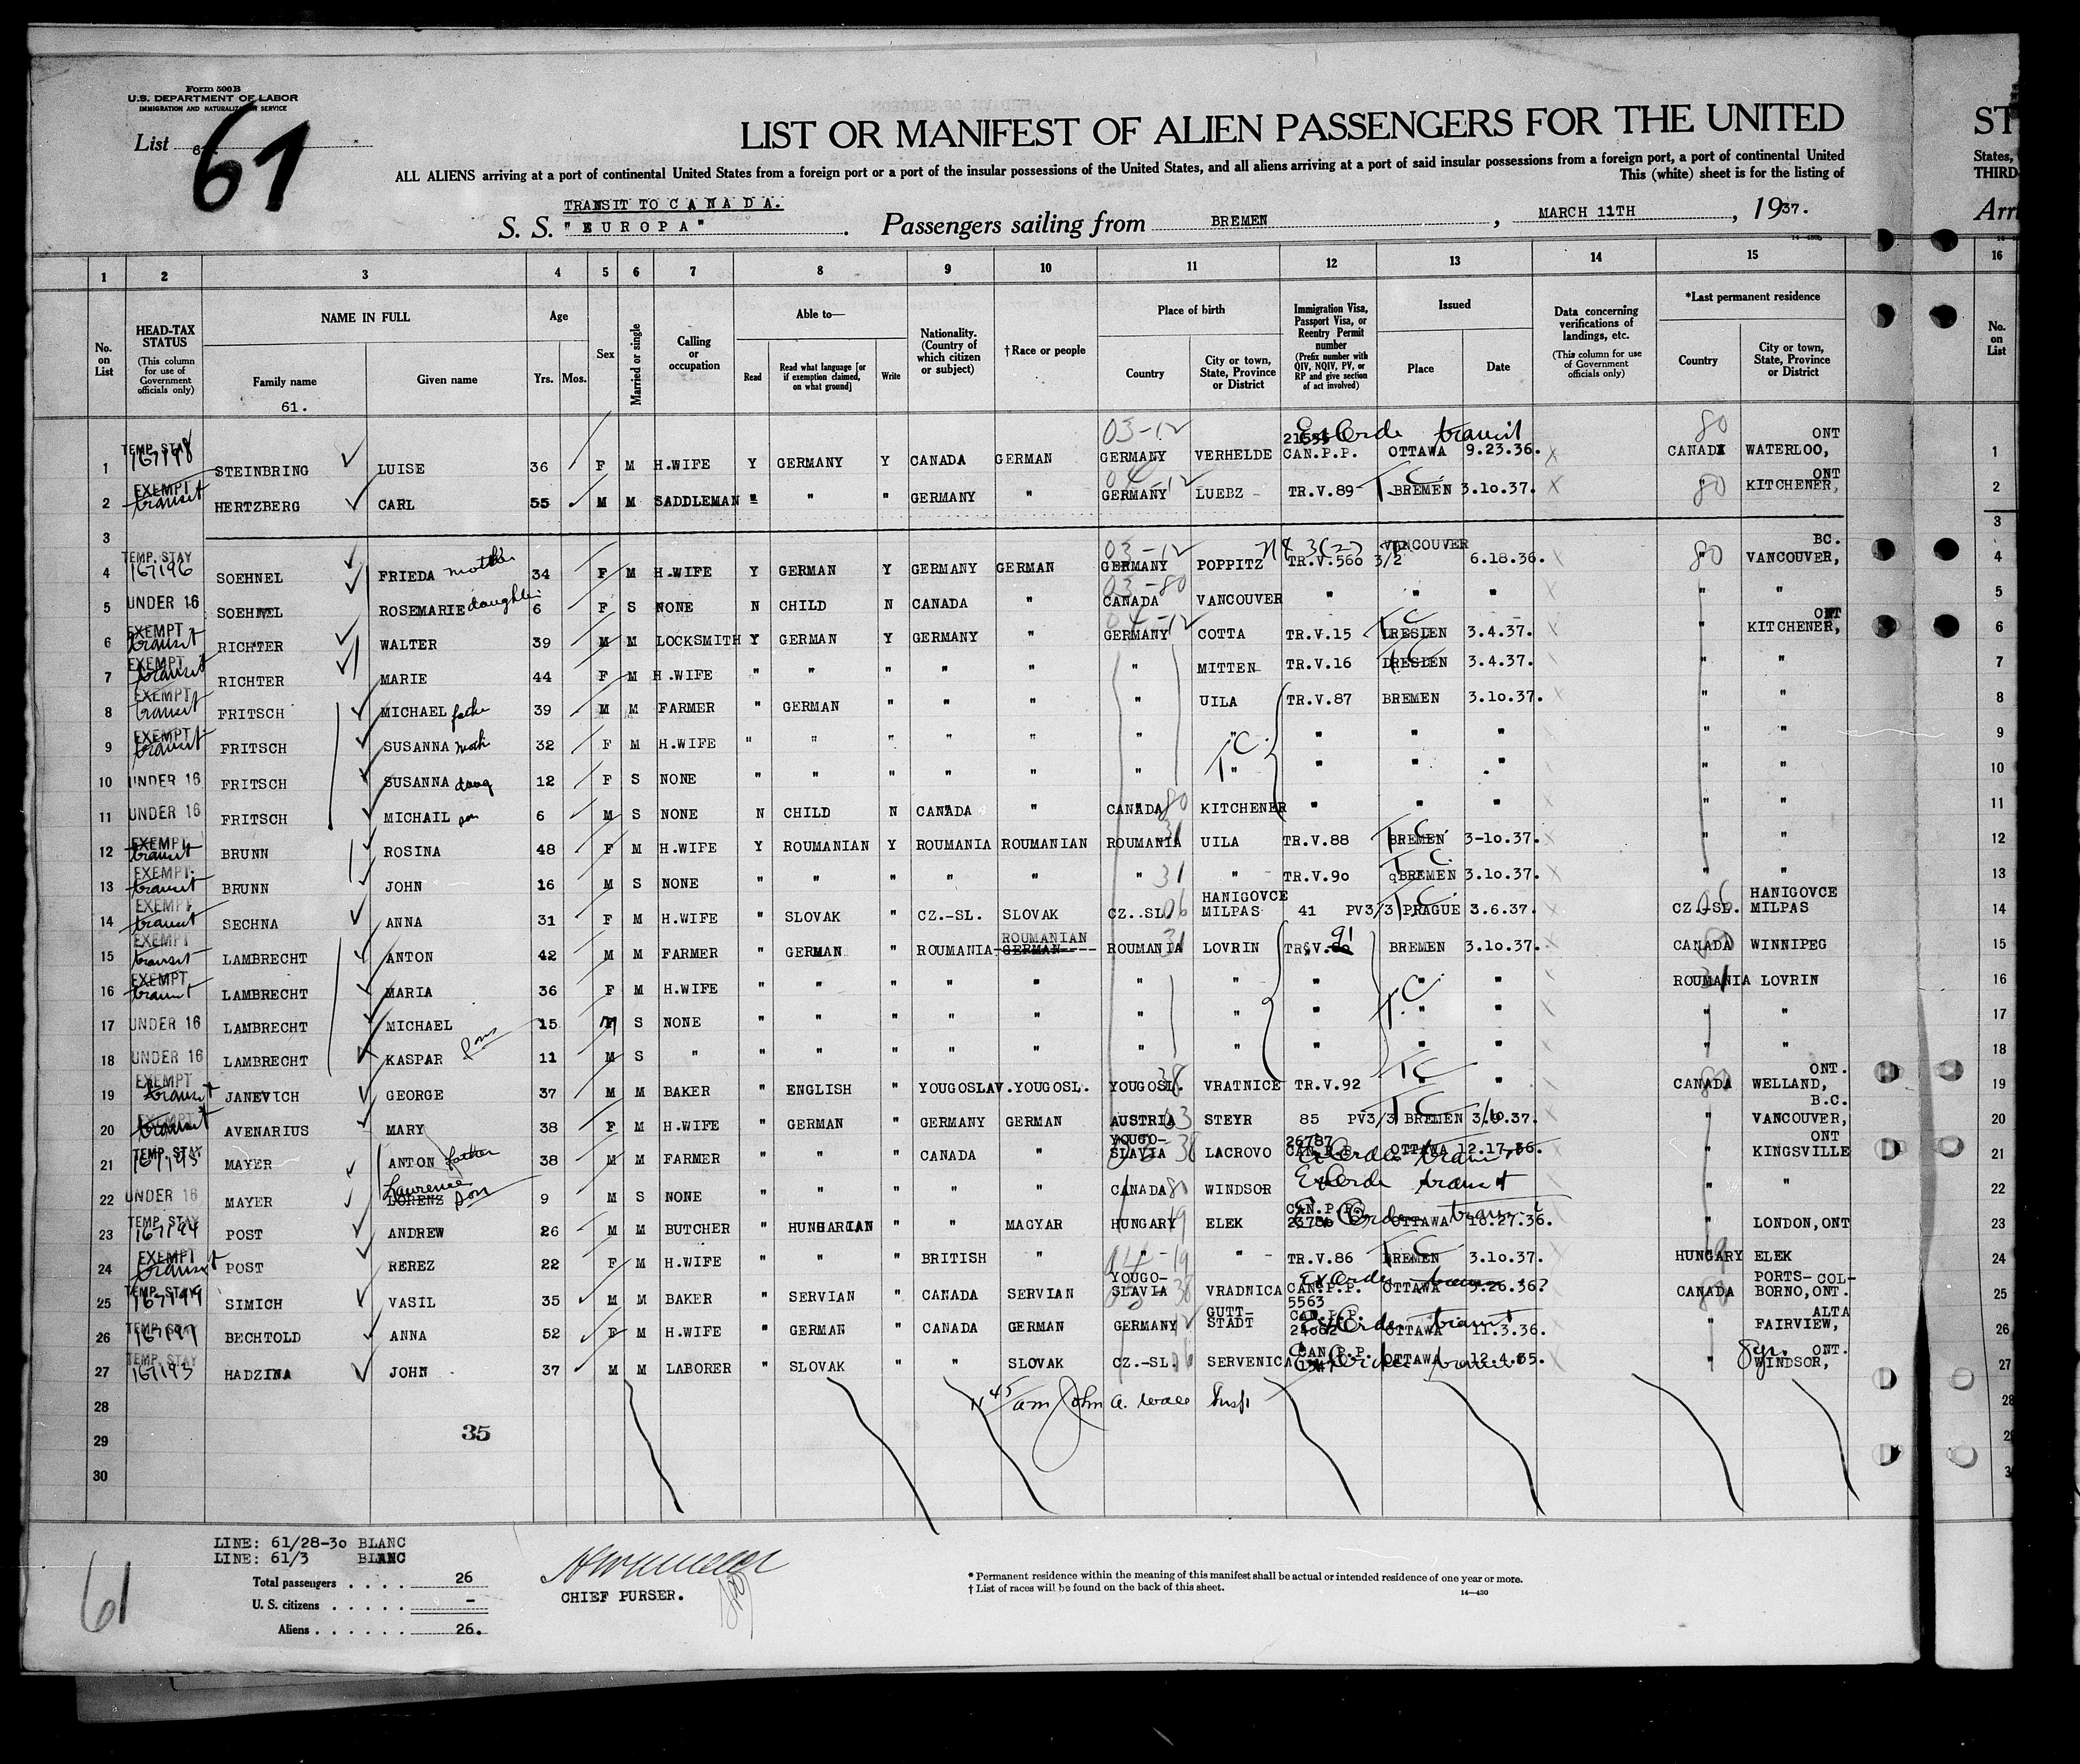 Form 500B
U.S. DEPARTMENT OF LABOR
IMMIGRATION AND NATURALIZATION SERVICE
List 61
LIST OR MANIFEST OF ALIEN PASSENGERS FOR THE UNITED
ST
ALL ALIENS arriving at a port of continental United States from a foreign port or a port of the insular possessions of the United States, and all aliens arriving at a port of said insular possessions from a foreign port, a port of continental United
States,
This (white) sheet is for the listing of
THIRD-
TRANSIT TO CANADA.
S. S. "EUROPA". Passengers sailing from BREMEN, MARCH 11TH, 1937.
Arri
1 2 3 4 5 6 7 8 9 10 11 12 13 14 15 16
No. on List
HEAD-TAX STATUS (This column for use of Government officials only)
NAME IN FULL
Family name
61.
Given name
Age
Yrs. Mos.
Sex
Married or single
Calling or occupation
Able to—
Read
Read what language [or if exemption claimed, on what ground]
Write
Nationality. (Country of which citizen or subject)
†Race or people
Place of birth
Country
City or town, State, Province or District
Immigration Visa, Passport Visa, or Reentry Permit number (Prefix number with QIV, NQIV, PV, or RP and give section of act involved)
Issued
Place
Date
Data concerning verifications of landings, etc. (This column for use of Government officials only)
*Last permanent residence
Country
City or town, State, Province or District
No. on List
1 TEMP. STAY 167198 STEINBRING LUISE 36 F M H.WIFE Y GERMANY Y CANADA GERMAN 03-12 GERMANY VERHELDE CAN.P.P. transit OTTAWA 9.23.36. 80 CANADA WATERLOO, ONT 1
2 EXEMPT transit HERTZBERG CARL 55 M M SADDLEMAN " " " GERMANY " GERMANY LUEBZ TR.V.89 TC BREMEN 3.10.37. 80 KITCHENER, ONT 2
3 3
4 TEMP. STAY 167196 SOEHNEL FRIEDA mother 34 F M H.WIFE Y GERMAN Y GERMANY GERMAN 03-12 GERMANY POPPITZ TR.V.560 3/2 VANCOUVER 6.18.36. 80 " VANCOUVER, BC. 4
5 UNDER 16 SOEHNEL ROSEMARIE daughter 6 F S NONE N CHILD N CANADA " 03-80 CANADA VANCOUVER " " " " " 5
6 EXEMPT transit RICHTER WALTER 39 M M LOCKSMITH Y GERMAN Y GERMANY " 04-12 GERMANY COTTA TR.V.15 TC DRESDEN 3.4.37. KITCHENER, ONT 6
7 EXEMPT transit RICHTER MARIE 44 F M H.WIFE " " " " " " MITTEN TR.V.16 TC DRESDEN 3.4.37. " " 7
8 EXEMPT transit FRITSCH MICHAEL father 39 M M FARMER " GERMAN " " " " UILA TR.V.87 BREMEN 3.10.37. " " 8
9 EXEMPT transit FRITSCH SUSANNA moth 32 F M H.WIFE " " " " " " " TC " " " " " 9
10 UNDER 16 FRITSCH SUSANNA daug 12 F S NONE " " " " " " " " " " " " 10
11 UNDER 16 FRITSCH MICHAIL son 6 M S NONE N CHILD N CANADA " CANADA 80 KITCHENER " " " " " 11
12 EXEMPT transit BRUNN ROSINA 48 F M H.WIFE Y ROUMANIAN Y ROUMANIA ROUMANIAN ROUMANIA 31 UILA TR.V.88 TC BREMEN 3-10.37. " " 12
13 EXEMPT transit BRUNN JOHN 16 M S NONE " " " " " " 31 " TR.V.90 TC BREMEN 3.10.37. " " 13
14 EXEMPT transit SECHNA ANNA 31 F M H.WIFE " SLOVAK " CZ.-SL. SLOVAK CZ.-SL. 06 HANIGOVCE MILPAS 41 PV3/3 TC PRAGUE 3.6.37. CZ.-SL. 06 HANIGOVCE MILPAS 14
15 EXEMPT transit LAMBRECHT ANTON 42 M M FARMER " GERMAN " ROUMANIA ROUMANIAN GERMAN ROUMANIA 31 LOVRIN TR.V. 91 BREMEN 3.10.37. CANADA WINNIPEG 15
16 EXEMPT transit LAMBRECHT MARIA 36 F M H.WIFE " " " " " " " " TC " " ROUMANIA 31 LOVRIN 16
17 UNDER 16 LAMBRECHT MICHAEL 15 M S NONE " " " " " " " " " " " " 17
18 UNDER 16 LAMBRECHT KASPAR sons 11 M S " " " " " " " " " " " " " 18
19 EXEMPT transit JANEVICH GEORGE 37 M M BAKER " ENGLISH " YOUGOSLAV. YOUGOSL. YOUGOSL. 38 VRATNICE TR.V.92 TC " " CANADA 80 WELLAND, ONT. 19
20 EXEMPT transit AVENARIUS MARY 38 F M H.WIFE " GERMAN " GERMANY GERMAN AUSTRIA 03 STEYR 85 PV3/3 TC BREMEN 3.10.37. " VANCOUVER, B.C. 20
21 TEMP. STAY 167195 MAYER ANTON father 38 M M FARMER " " " CANADA " YOUGO-SLAVIA 38 LACROVO 26787 CAN.P.P. transit OTTAWA 12.17.36. " KINGSVILLE ONT 21
22 UNDER 16 MAYER LORENZ Lawrence son 9 M S NONE " " " " " CANADA 80 WINDSOR transit " " 22
23 TEMP. STAY 167194 POST ANDREW 26 M M BUTCHER " HUNGARIAN " " MAGYAR HUNGARY 19 ELEK CAN.P.P. transit OTTAWA 10.27.36. " LONDON,ONT 23
24 EXEMPT transit POST REREZ 22 F M H.WIFE " " " BRITISH " 04-19 " " TR.V.86 TC BREMEN 3.10.37. HUNGARY 19 ELEK 24
25 TEMP. STAY 167199 SIMICH VASIL 35 M M BAKER " SERVIAN " CANADA SERVIAN YOUGO-SLAVIA 38 VRADNICA CAN.P.P. 5563 OTTAWA CANADA 80 PORTS-COL-BORNO,ONT. 25
26 TEMP. STAY BECHTOLD ANNA 52 F M H.WIFE " GERMAN " CANADA GERMAN GERMANY 12 GUTT-STADT CAN.P.P. transit OTTAWA 11.3.36. " FAIRVIEW, ALTA 26
27 TEMP. STAY 167193 HADZINA JOHN 37 M M LABORER " SLOVAK " " SLOVAK CZ.-SL. 06 SERVENICA CAN.P.P. transit OTTAWA 12.4.35. " 8yr. WINDSOR, ONT. 27
28 11 45 am John A. Insp 28
29 35
30
LINE: 61/28-30 BLANC
LINE: 61/3 BLANC
61
Total passengers . . . . 26
U. S. citizens . . . . . –
Aliens . . . . . . 26.
CHIEF PURSER.
* Permanent residence within the meaning of this manifest shall be actual or intended residence of one year or more.
† List of races will be found on the back of this sheet.
14—430